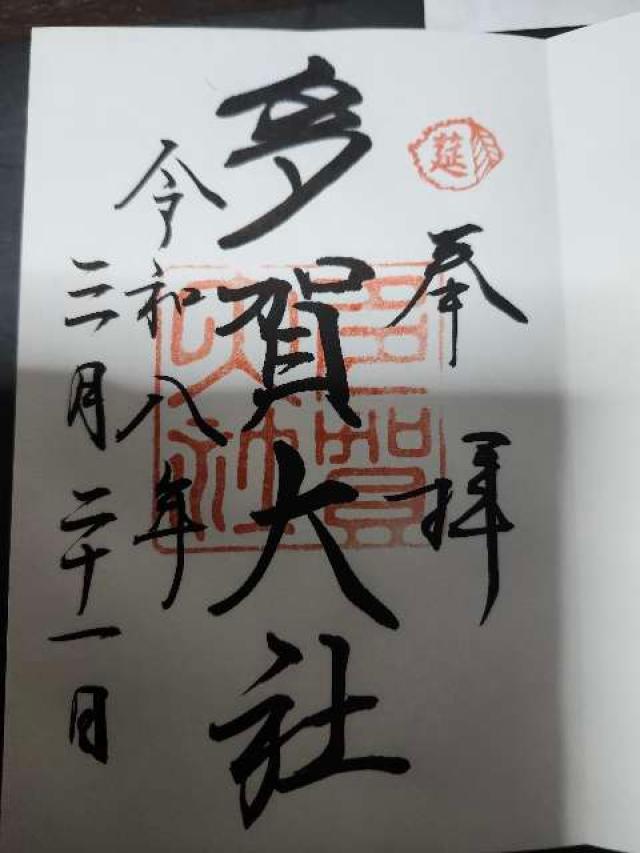 莚
奉拝
多賀大社
多賀大社
令和八年
三月二十一日